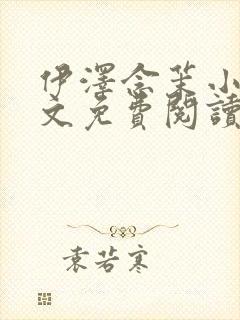 伊澤念茉小
文免費閱讀
袁若寒